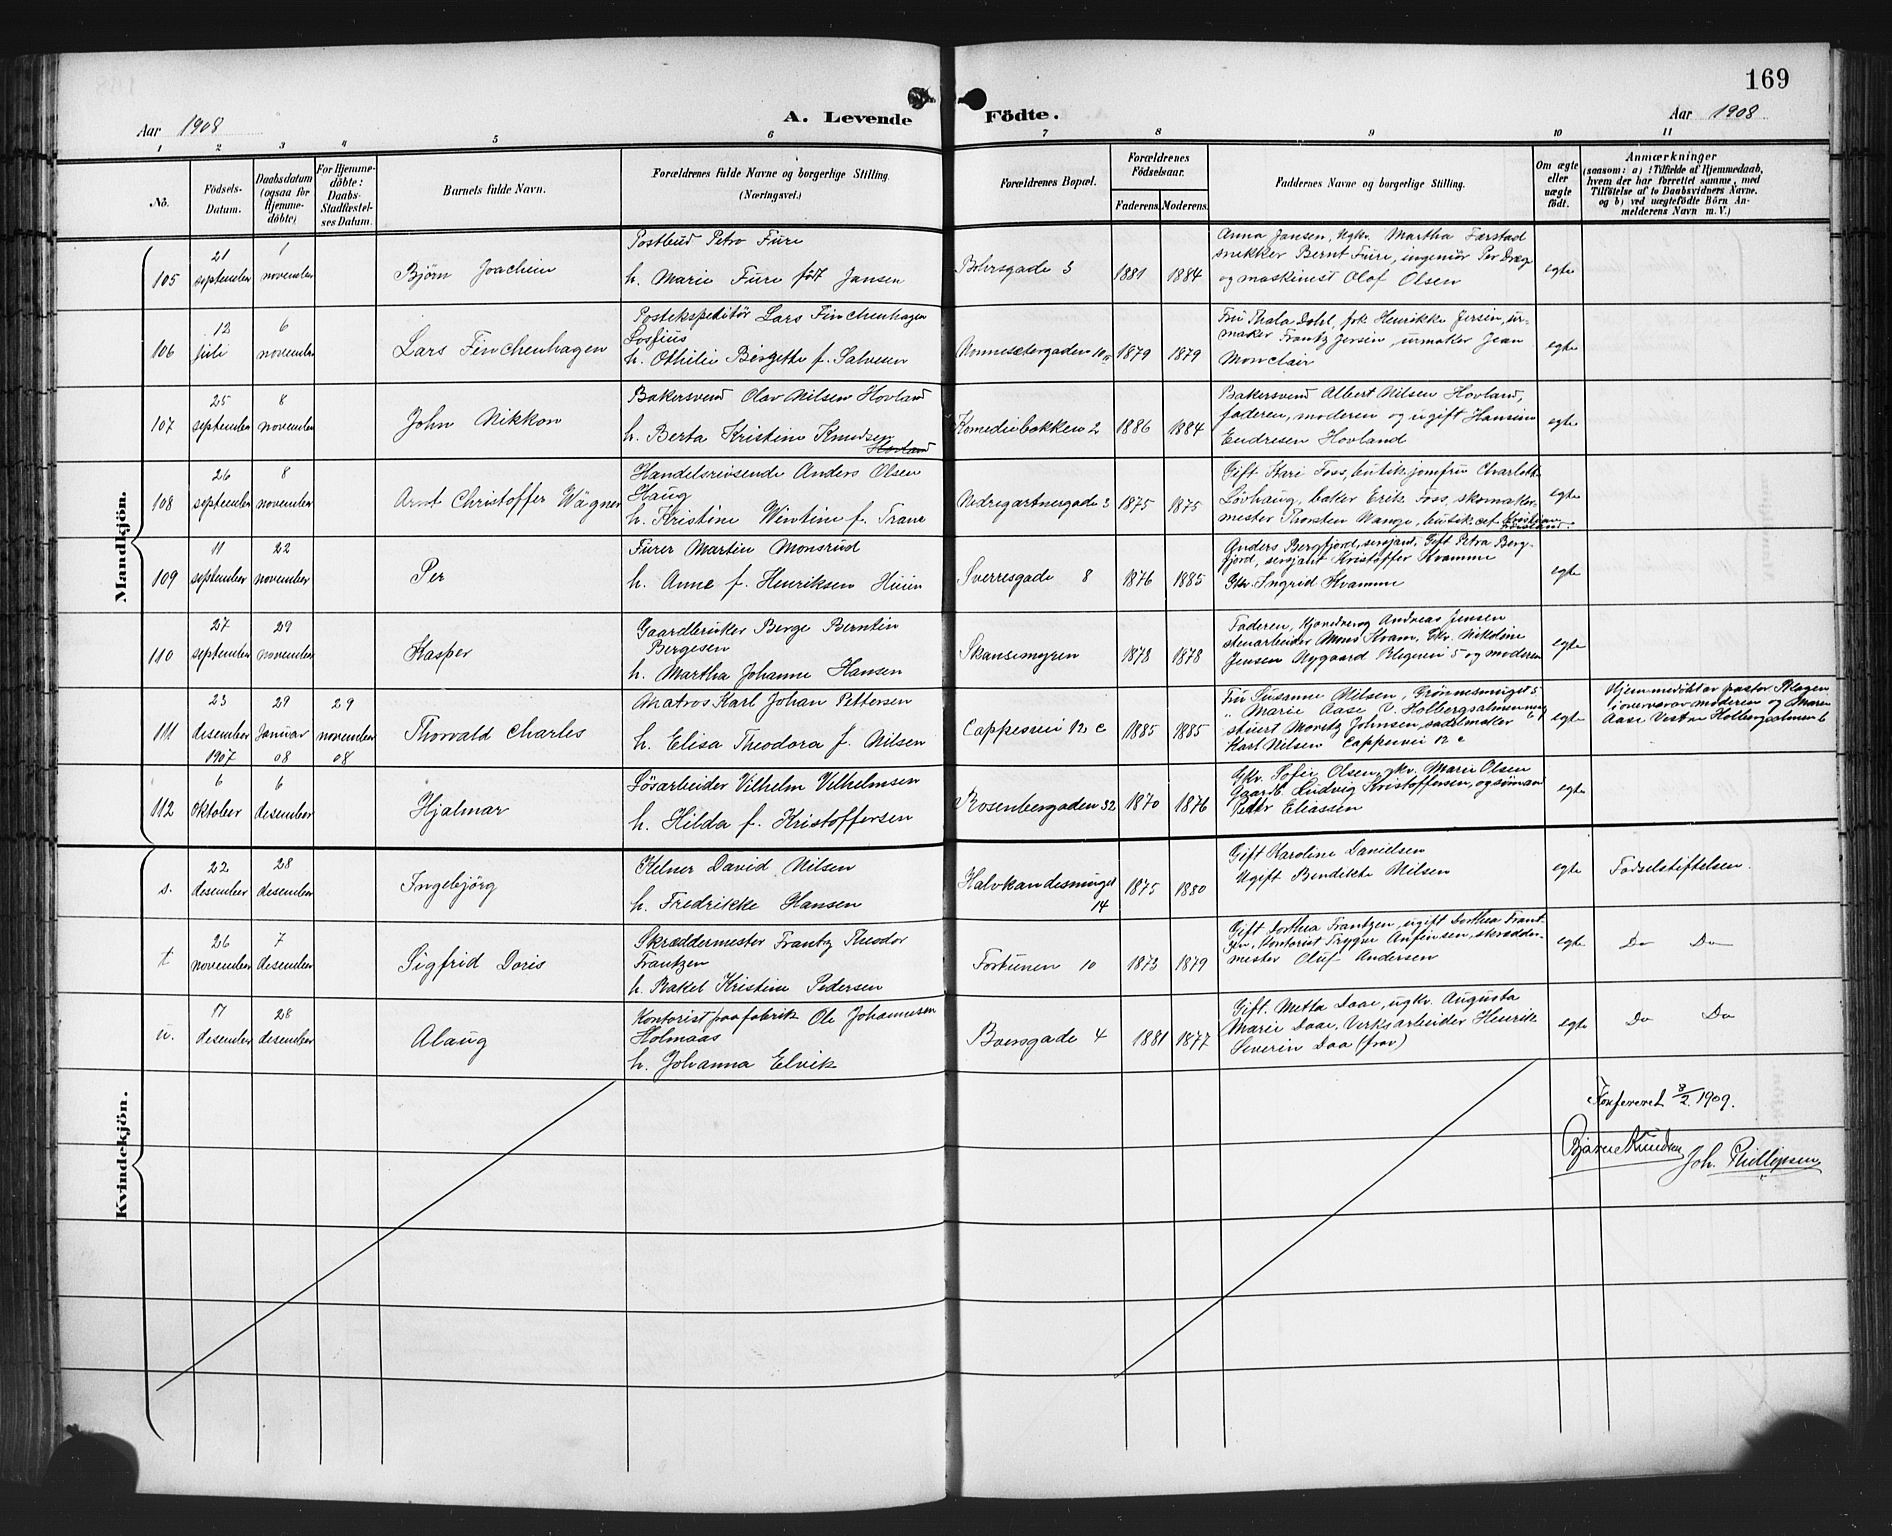 169
Aar 1908
A. Levende Födte.
Aar 1908
1 2 3 4 5 6 7 8 9 10 11
No.
Födsels-
Datum.
Daabsdatum
(ogsaa for
Hjemme-
döbte)
For Hjemme-
döbte:
Daabs-
Stadfæstel-
ses Datum.
Barnets fulde Navn.
Forældrenes fulde Navne og borgerlige Stilling.
(Næringsvei.)
Forældrenes Bopæl.
Forældrenes
Födselsaar.
Faderens. Moderens.
Faddernes Navne og borgerlige Stilling.
Om ægte
eller
uægte
födt.
Anmærkninger
(saasom: a) i Tilfælde af Hjemmedaab,
hvem der har forrettet samme, med
Tilföielse af to Daabsvidners Navne.
og b) ved uægtefödte Börn An-
melderens Navn m. V.)
Mandkjön.
105
21
september
1
november
Björn Joachim
Postbud Petro Fure
h. Marie Fure født Jansen
Bøhrsgade 3
1881 1884
Anna Jansen, ugkv. Martha Færstad
snekker Bernt Fure, ingeniør Per Dræg
og maskinist Olaf Olsen
egte
106
12
juli
6
november
Lars Finchenhagen
Postekspeditör Lars Finchenhagen
Sosfius
h. Othilie Bergette f. Salvesen
Nonnesætergaden 10
1879 1879
Fru Thala Dahl, frk Henrikke Jersin, ur-
maker Frantz Jersin, urmaker Jean
Monclair
egte
107
25
september
8
november
John Nikkon
Bakersvend Olav Nilsen Hovland
h. Berta Kristine Knudsen
Hovland
Komediebakken 2
1886 1884
Bakersvend Albert Nilsen Hovland,
faderen, moderen og ugift Hansine
Endresen Hovland
egte
108
26
september
8
november
Arnt Christoffer Wägner
Handelsreisende Anders Olsen
Haug
h. Kristine Wintine f. Trane
Nedregartnergade 3
1875 1875
Gift Kari Foss, butikjomfru Charlotte
Løvhaug, baker Erik Foss, skomaker-
mester Thorsten Wange, butik
egte
109
11
september
22
november
Per
Furer Martin Monsrud
h. Anne f. Henriksen Huien
Sverresgade 8
1876 1885
Anders Bergfjord, sersjant, Gift Petra Berg-
fjord, sersjant Kristoffer Kvamme
Gkv. Ingrid Kvamme
egte
110
27
september
29
november
Kasper
Gaardbruker Berge Berntin
Bergesen
h. Martha Johanne Hansen
Skansemyren
1878 1878
Faderen, Andreas Jensen
stenarbeider Mons Kram, Gkv. Nikoline
Jensen Nygaard Blegevei 5 og moderen
egte
111
23
desember
1907
29
Januar
08
29
november
08
Thorvald Charles
Matros Karl Johan Pettersen
h. Elisa Theodora f. Nilsen
Cappesvei 12 c
1885 1885
Fru Susanne Nilsen, Grønnesmuget 5
" Marie Aase V. Holbergsalmenning 6
stuert Moritz Johnsen, sadelmaker
Karl Nilsen Cappesvei 12 c
egte
Hjemmedøbt av pastor Blagen
i overvær av moderen og Marie
Aase Vestre Holbergsalmen 6
112
6
Oktober
6
desember
Hjalmar
Løsarbeider Vilhelm Vilhelmsen
h. Hilda f. Kristoffersen
Rosenbergaden 32
1870 1876
Gkv. Sofie Olsen, gkv. Marie Olsen
Gaardb. Ludvig Kristoffersen, og sømand
Peter Eliassen
egte
Kvindekjön.
s.
22
desember
28
desember
Ingebjörg
Kelner David Nilsen
h. Fredrikke Hansen
Halvkandesmuget
14
1875 1880
Gift Karoline Danielsen
Ugift Bendikte Nilsen
egte
Fødselstiftelsen.
t
26
november
7
desember
Sigfrid Doris
Skræddermester Frantz Theodor
Frantzen
h. Rakel Kristine Pedersen
Fortunen 10
1873 1879
Gift Dorthea Frantzen, ugift Dorthea Frant-
zen, kontorist Trygve Anfinsen, skrædder-
mester Oluf Andersen
egte
Do Do
u.
17
desember
28
desember
Alaug
Kontorist paa fabrik Ole Johannesen
Holmaas
h. Johanna Elvik
Boersgade 4
1881 1877
Gift. Metta Daae, ugkv. Augusta
Marie Daae, Verksarbeider Henrik
Severin Daa (frav)
egte
Do Do
Konfereret 8/2 1909.
Bjarne Knudsen
Joh. Phillipsen